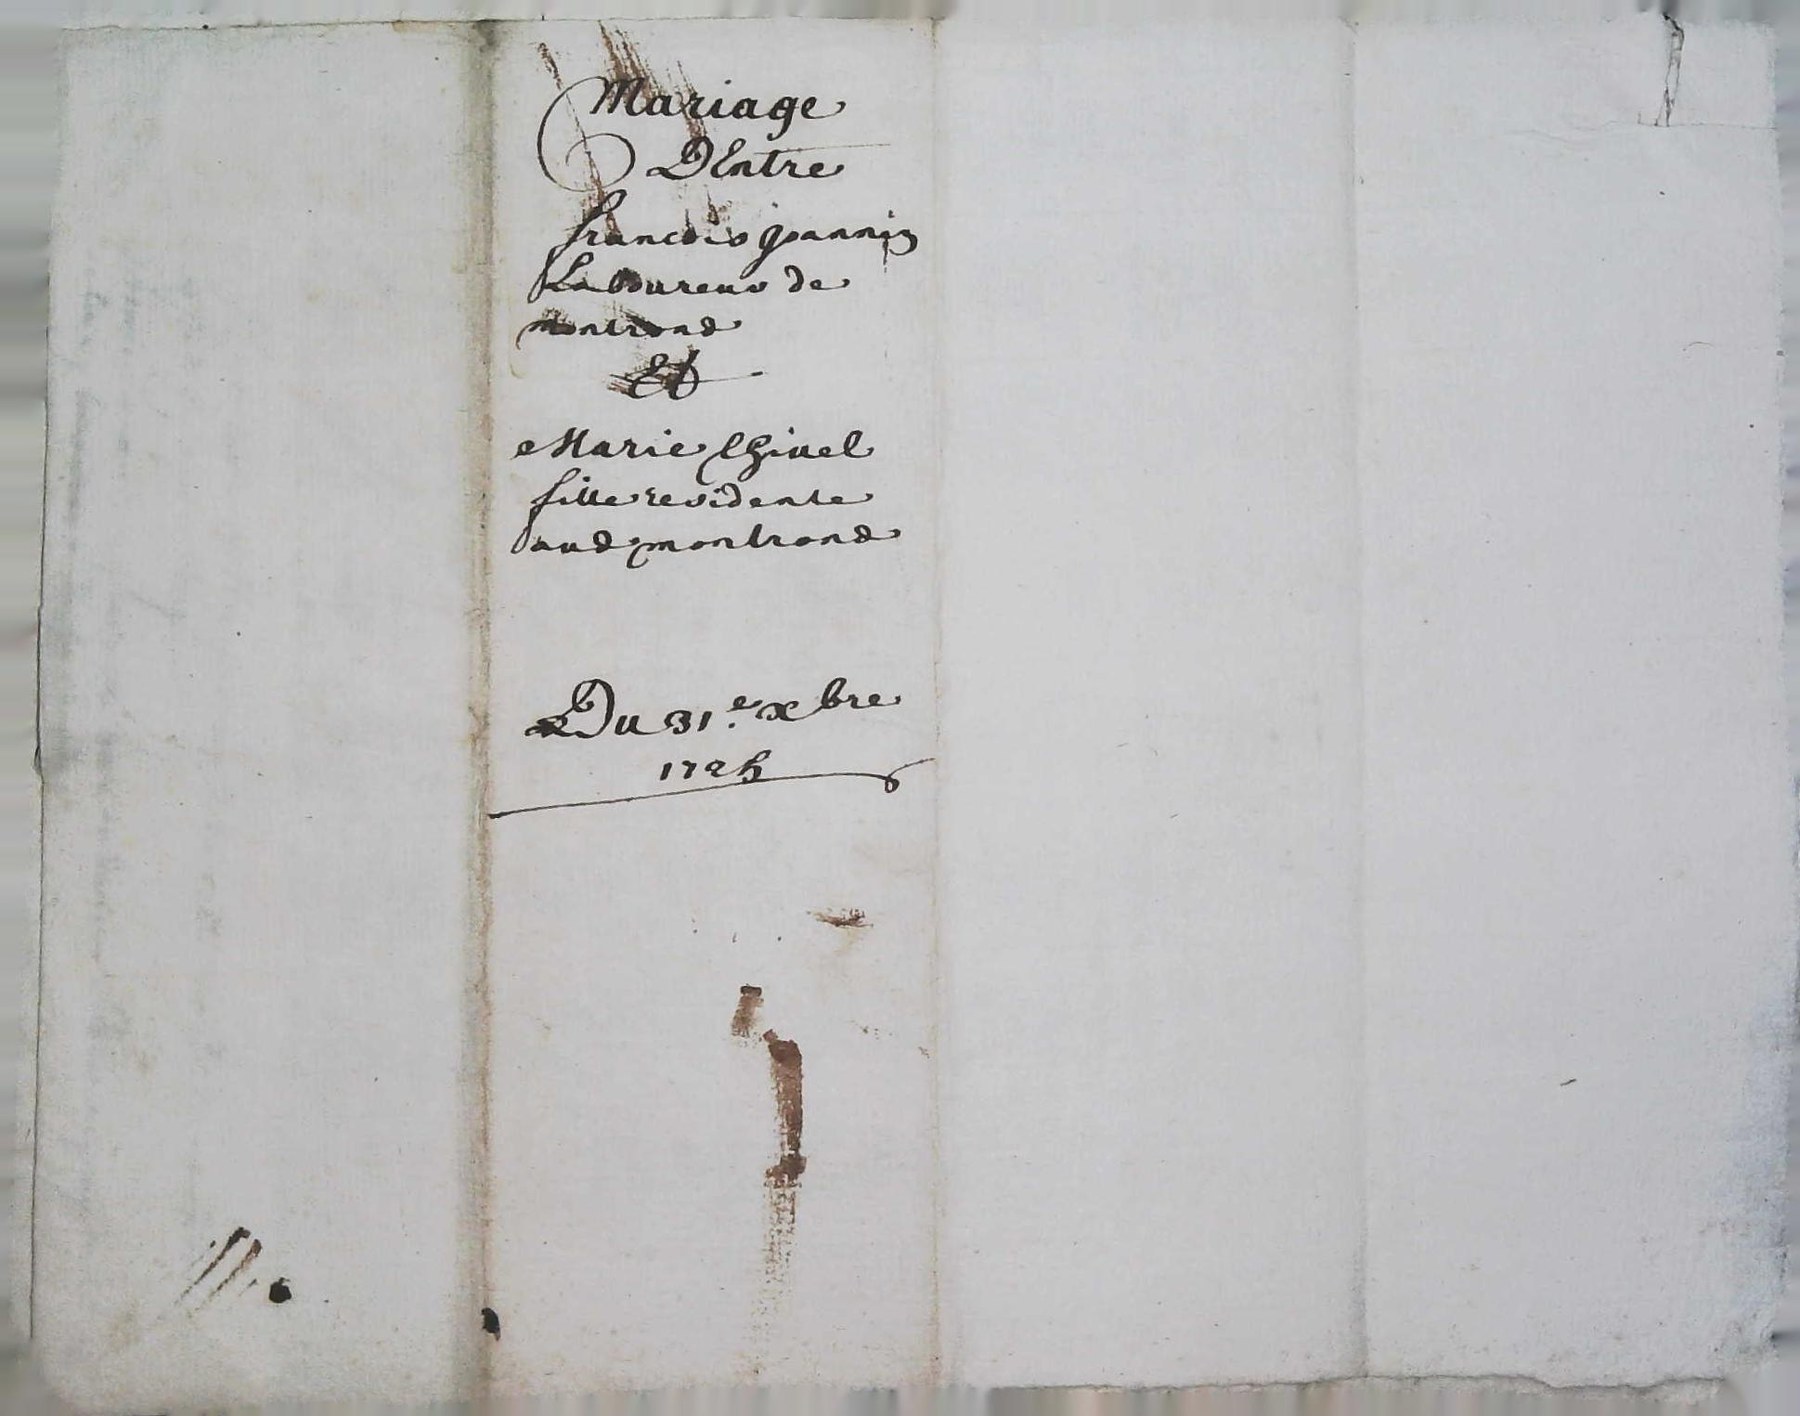 Mariage
DEntre
francois joannin
Laboureur de
montrond
Et
Marie Chivel
fille residente
aud montrond
Du 31.e xbre
1725